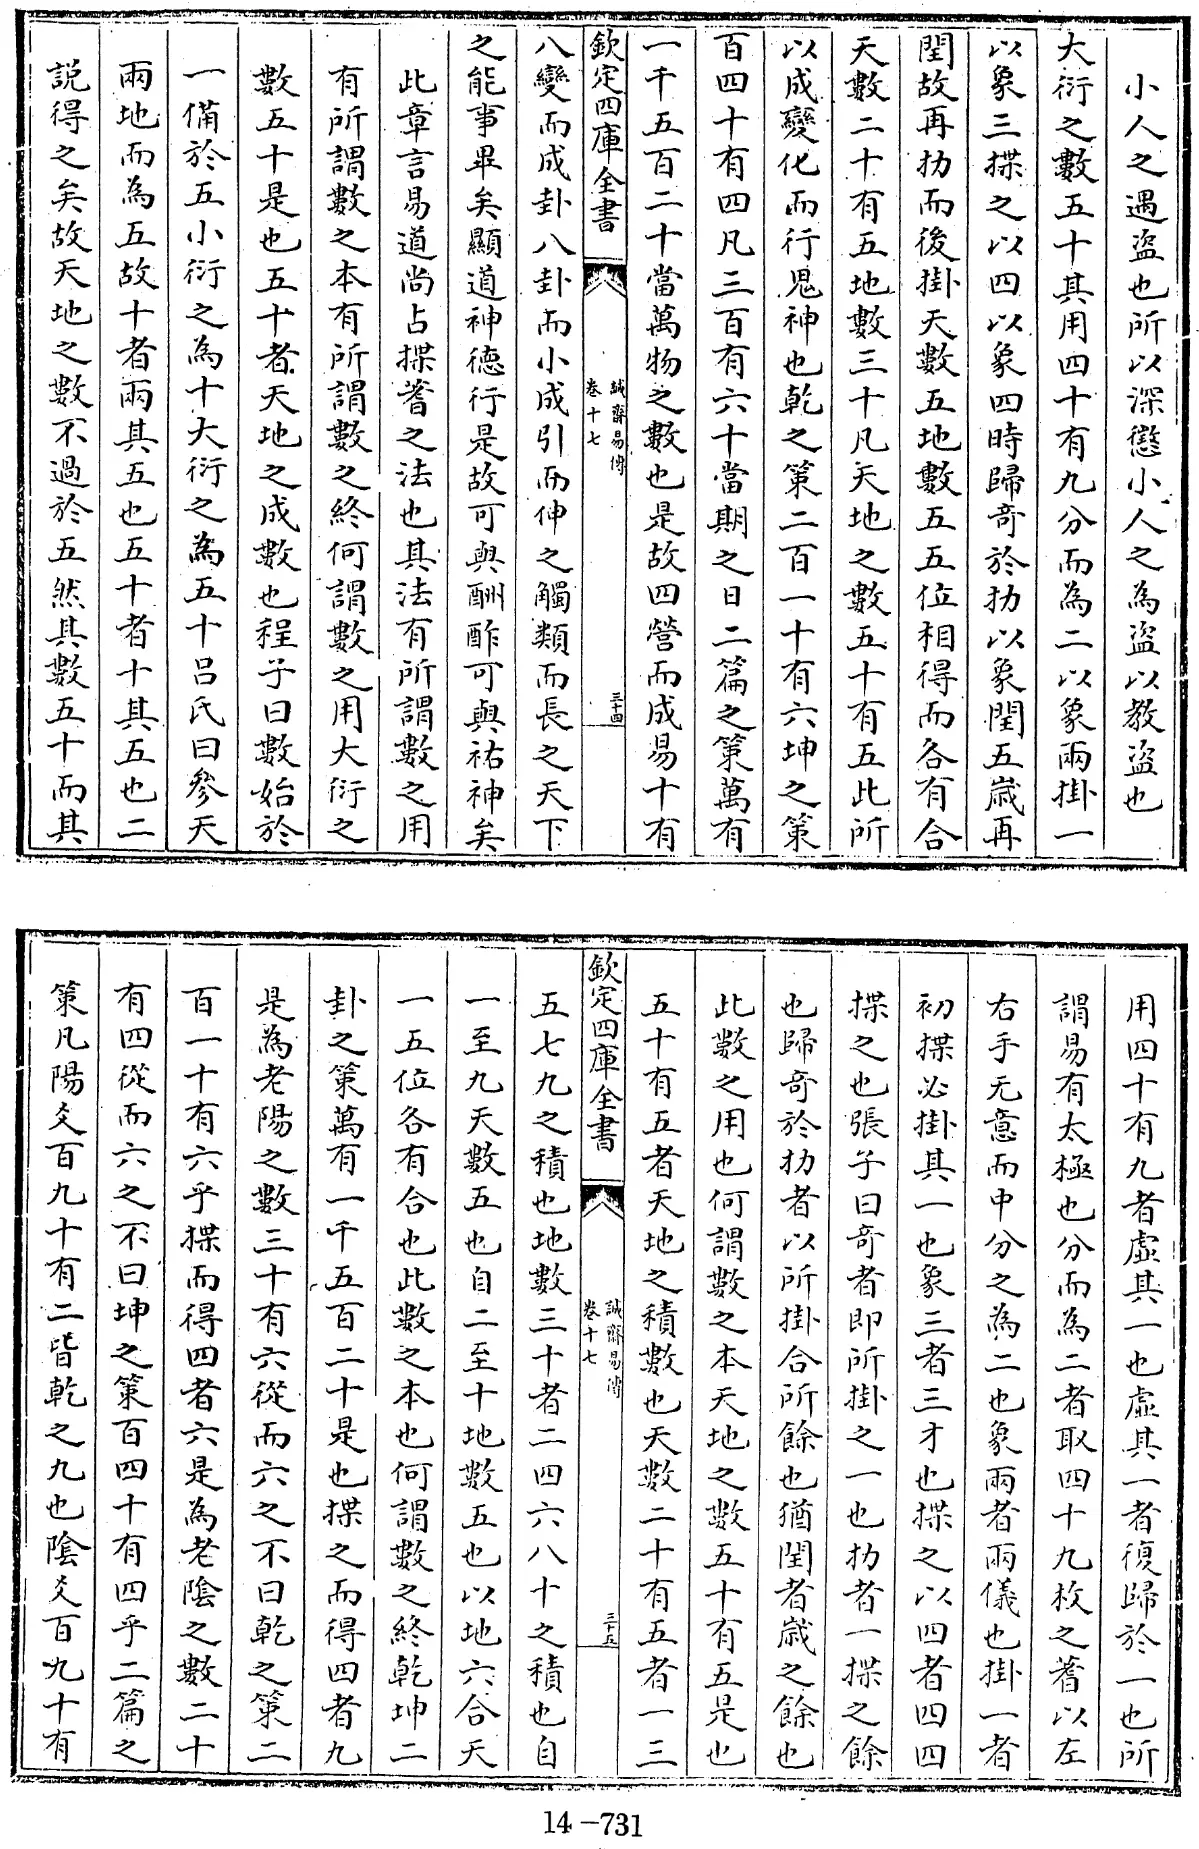 小人之遇盜也所以深懲小人之為盜以教盜也
大衍之數五十其用四十有九分而為二以象兩掛一
以象三揲之以四以象四時歸奇於扐以象閏五歲再
閏故再扐而後掛天數五地數五五位相得而各有合
天數二十有五地數三十凡天地之數五十有五此所
以成變化而行鬼神也乾之策二百一十有六坤之策
百四十有四凡三百有六十當期之日二篇之策萬有
一千五百二十當萬物之數也是故四營而成易十有
欽定四庫全書
誠齋易傳
卷十七
三十四
八變而成卦八卦而小成引而伸之觸類而長之天下
之能事畢矣顯道神德行是故可與酬酢可與祐神矣
此章言易道尚占揲蓍之法也其法有所謂數之用
有所謂數之本有所謂數之終何謂數之用大衍之
數五十是也五十者天地之成數也程子曰數始於
一備於五小衍之為十大衍之為五十呂氏曰參天
兩地而為五故十者兩其五也五十者十其五也二
説得之矣故天地之數不過於五然其數五十而其
用四十有九者虛其一也虛其一者復歸於一也所
謂易有太極也分而為二者取四十九枚之蓍以左
右手无意而中分之為二也象兩者兩儀也掛一者
初揲必掛其一也象三者三才也揲之以四者四四
揲之也張子曰奇者即所掛之一也扐者一揲之餘
也歸奇於扐者以所掛合所餘也猶閏者歲之餘也
此數之用也何謂數之本天地之數五十有五是也
五十有五者天地之積數也天數二十有五者一三
欽定四庫全書
誠齋易傳
卷十七
三十五
五七九之積也地數三十者二四六八十之積也自
一至九天數五也自二至十地數五也以地六合天
一五位各有合也此數之本也何謂數之終乾坤二
卦之策萬有一千五百二十是也揲之而得四者九
是為老陽之數三十有六從而六之不曰乾之策二
百一十有六乎揲而得四者六是為老陰之數二十
有四從而六之不曰坤之策百四十有四乎二篇之
策凡陽爻百九十有二皆乾之九也陰爻百九十有
14-731